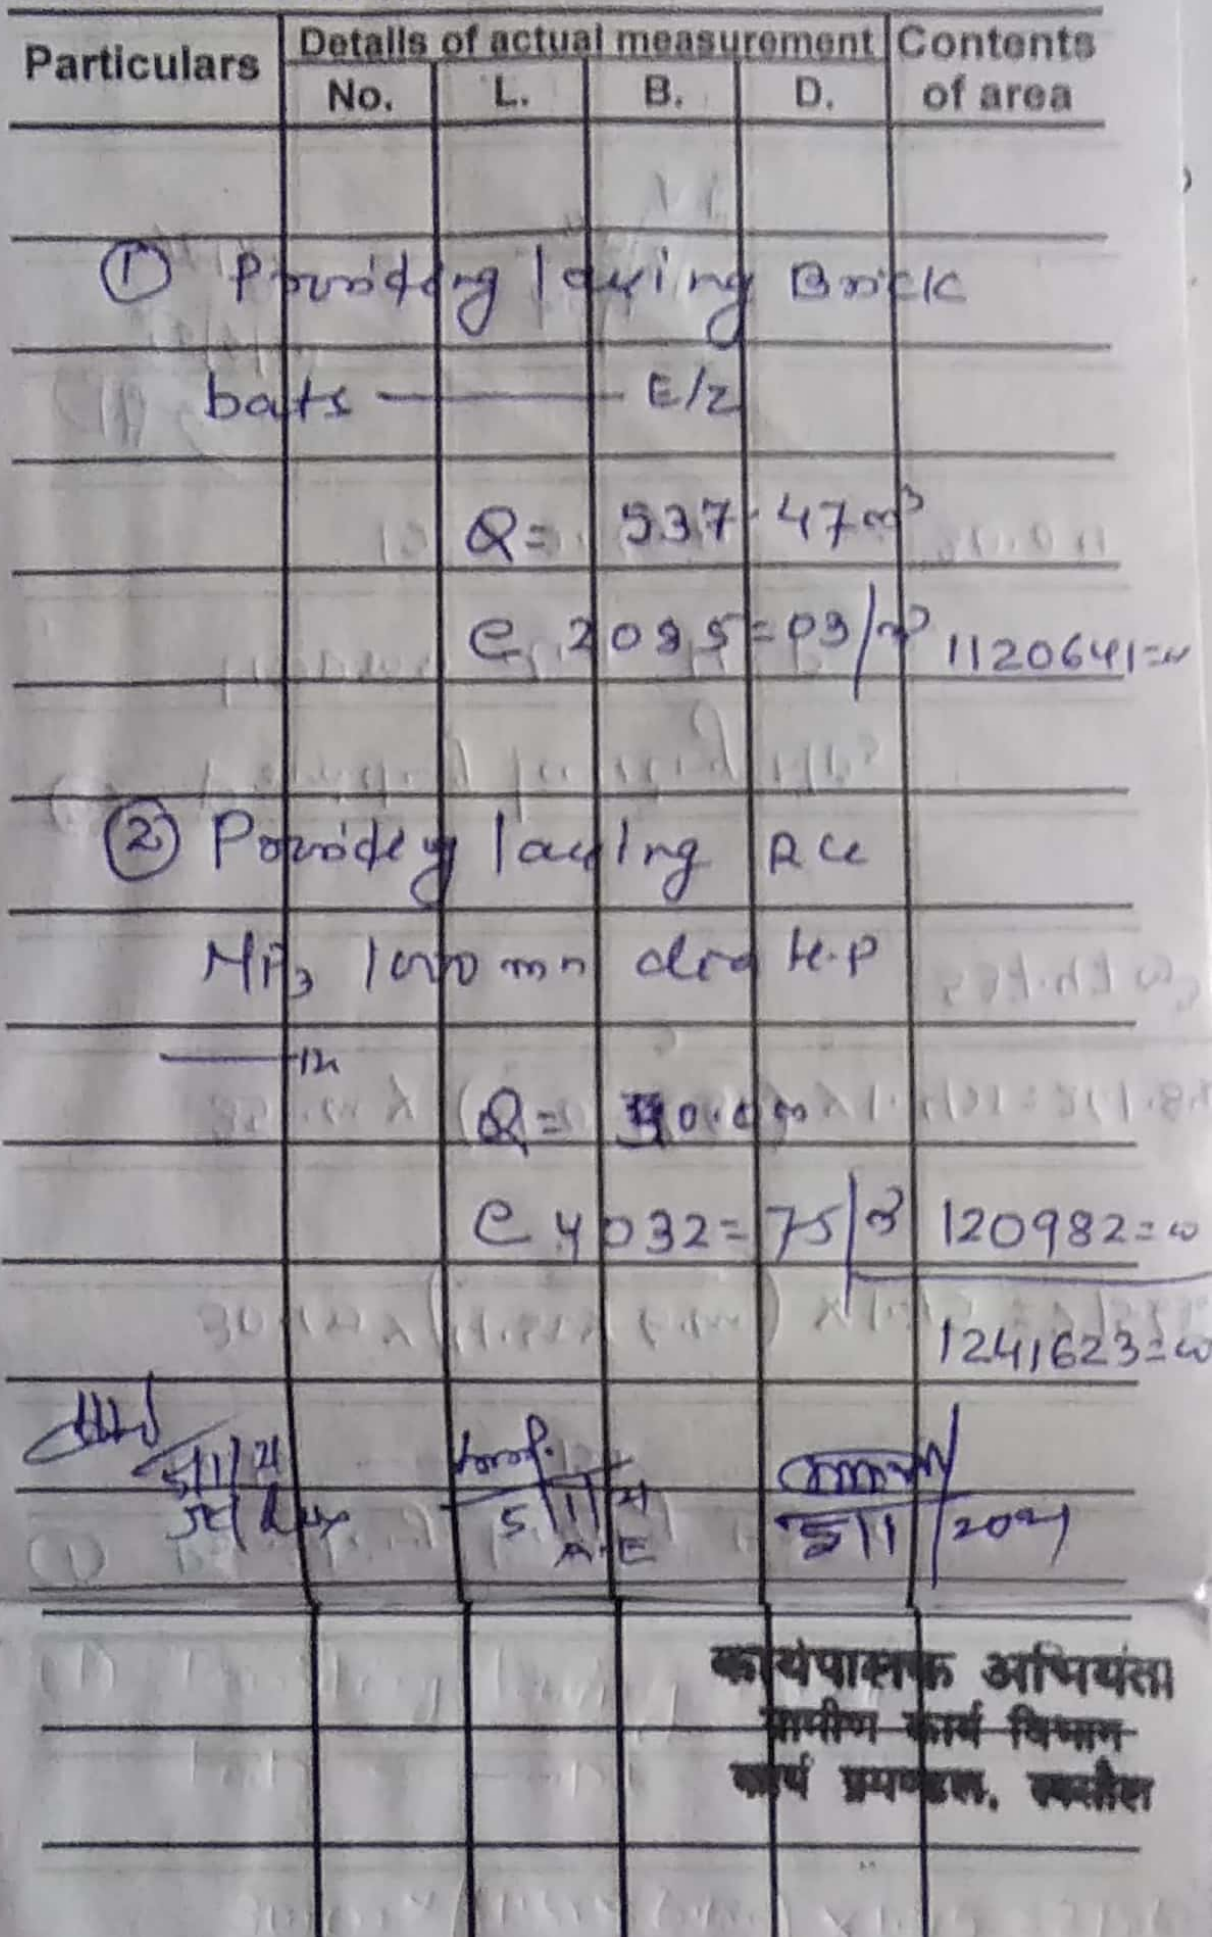 Particulars Details of actual measurement Contents of area
No. L. B. D.
① Providing laying Brick
bats — E/2
Q= 537.47m³
@ 2085=03/m³ 1120641=00
② Providing laying RCC
NP3 1000 mm dia H.P
Q= 30.0m
@ 4032=75/m 120982=00
1241623=00
5/1/21
5/1/21
A.E
5/1/2021
कार्यपालक अभियंता
ग्रामीण कार्य विभाग
कार्य प्रमण्डल,